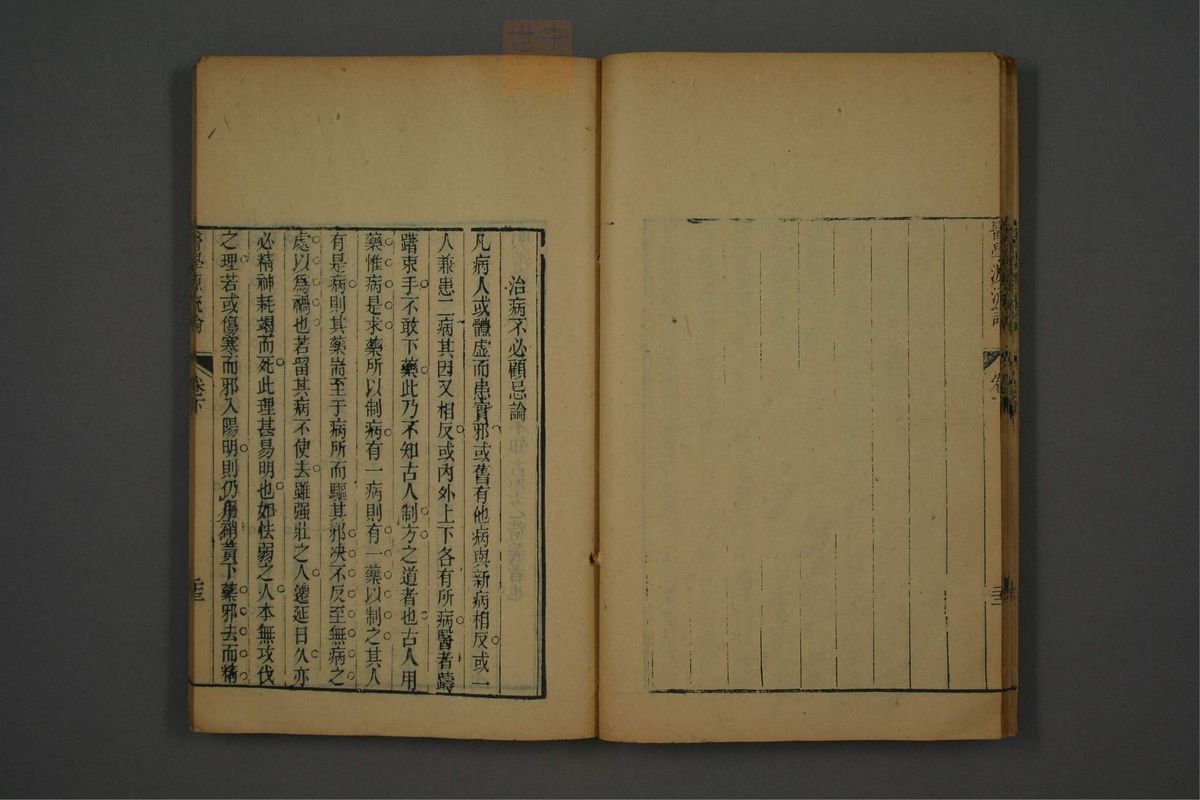 醫學源流論
卷
治病不必顧忌論
凡病人或體虛而患實邪或舊有他病與新病相反或一
人兼患二病其因又相反或內外上下各有所病醫者躊
躇束手不敢下藥此乃不知古人制方之道者也古人用
藥惟病是求藥所以制病有一病則有一藥以制之其人
有是病則其藥耑至于病所而驅其邪决不反至無病之
處以爲禍也若留其病不使去雖强壯之人遷延日久亦
必精神耗竭而死此理甚易明也如怯弱之人本無攻伐
之理若或傷寒而邪入陽明則仍用硝黃下藥邪去而精
醫學源流論
卷下